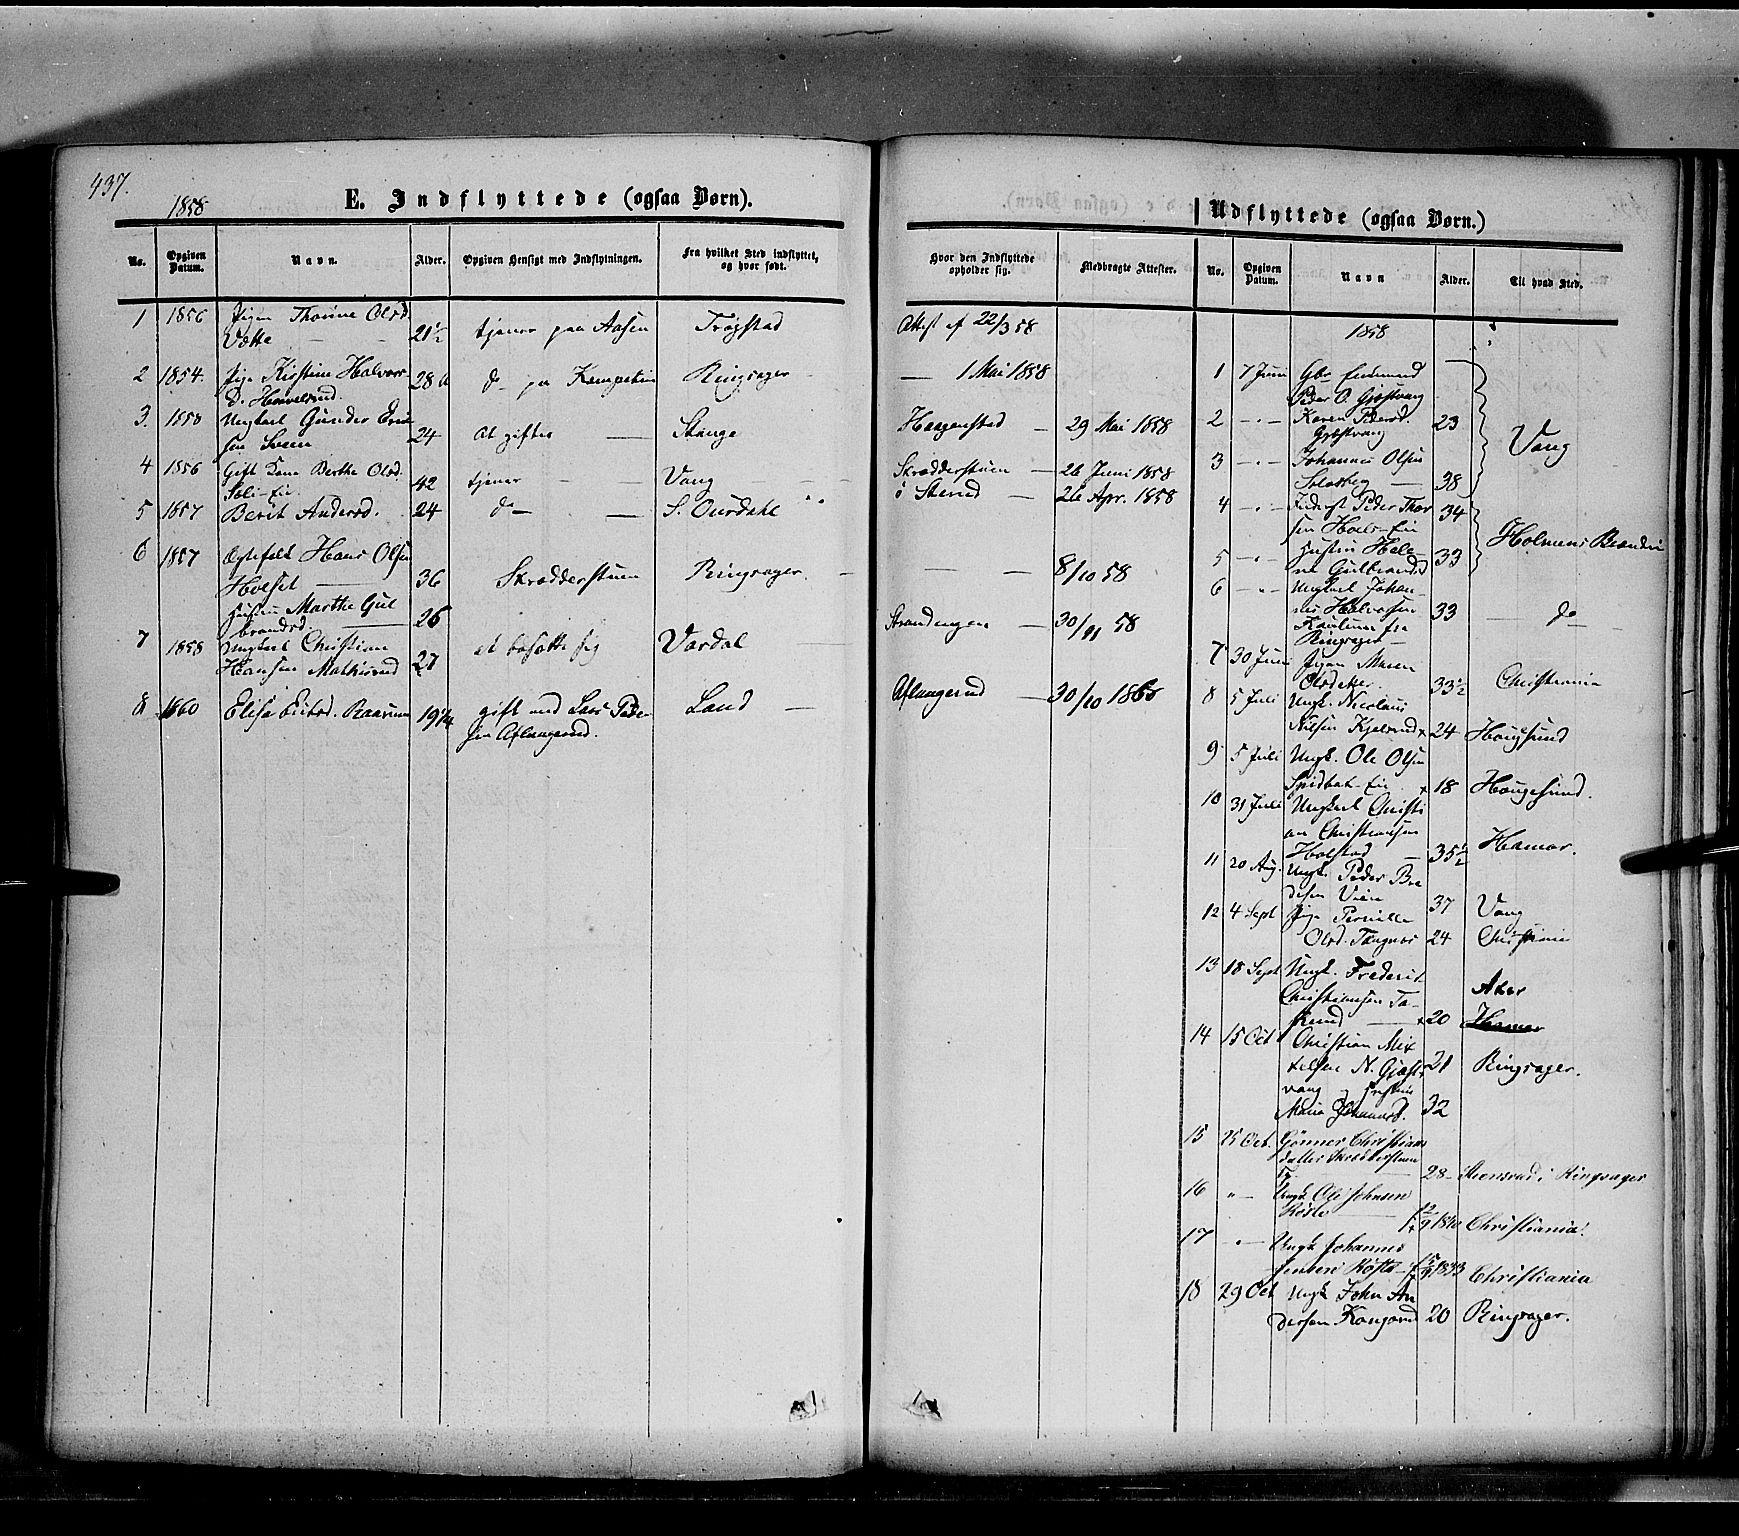 437.
1858
E. Indflyttede (ogsaa Børn).
No.
Opgiven Datum.
Navn.
Alder.
Opgiven Hensigt med Indflytningen.
Fra hvilket Sted indflyttet, og hvor født.
Hvor den Indflyttede opholder sig.
Medbragte Attester.
1 1856 Pigen Thorine Olsd. 21½ tjener paa Aasen Trøgstad Attest af 22/3 58
2 1854. Pige Kirstine Halvors- 28 do Ringsager — 1 Mai 1858
D.
3. Ungkarl Gunder 24 At giftes Stange Haagenstad — 29 Mai 1858
4 1856 Gift Kone Berthe Olsd. 42 tjener Vang Skrædderstuen — 26 Juni 1858
5 1857 Berit Andersd. 24 do S. Ourdahl 26 Apr. 1858
6 1857 Ægtefolk Hans Olsen
Holset 36 Skrædderstuen Ringsager. 8/10 58
Hustru Marthe Gul
brandsd. 26
7 1858 Ungkarl Christian at bosætte sig Vardal Strandengen 30/11 58
Hansen 27
8 1860 Elise 19¼ gift med Lars Peder Land Aflangerud — 30/10 1860
sen Aflangerud.
Udflyttede (ogsaa Børn.)
No.
Opgiven Datum.
Navn
Alder.
Til hvad Sted.
1858
1 7 Juni
Peder O. Gjøstvang
2 Karen Pedersd. 23
Gjøstvang Vang
3 Johannes Olsen
Solberg 38
4 Inderst Peder Thor 34
sen
5 Hustru Hele- 33 Holmens
ne Gulbrandsd
6 Ungkarl Johan-
nes Halvorsen 33 do
fra
Ringsager
7 30 Juni Pigen Maren
Olsd. 33½ Christiania
8 5 Juli Ungk. Nicolaus
Nilsen Kjelsrud 24 Hougsund
9 5 Juli Ungk. Ole Olsen
18 Hougesund.
10 31 Juli Ungkarl Christi
an Christiansen
Holstad 35½ Hamar.
11 20 Aug. Ungk. Peder Bre
desen 37 Vang
12 4 Sept Pige Pernille
Olsd. Tangnes 24 Christiania
13 18 Sept Ungk. Frederik
Christiansen Aker
20 Hamar
14 15 Oct Christian Mik
kelsen N. Gjøst 21 Ringsager.
vang Hustru
Maria Johannesd. 32
15 25 Oct. Gønner Christians
datter Skrædderstuen
28 i Ringsager
16 Ungk Ole Johnsen
Røste 1840 Christiania.
17 Ungk Johannes
Jensen Røste 1833 Christiania
18 29 Oct Ungk John An
dersen Kongsrud 20 Ringsager.